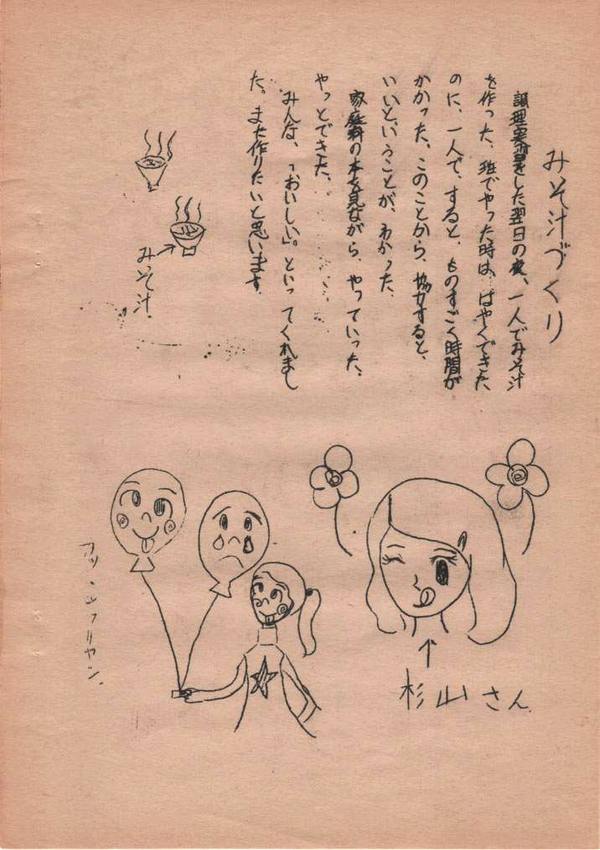 みそ汁づくり
調理実習をした翌日の夜、一人でみそ汁
を作った、班でやった時は、ぱやくできた
のに、一人で、すると、ものすごく時間が
かかった、このことから、協力すると、
いいということが、わかった、
家庭科の本を見ながら、やっていった、
やっとできた、
みんな、「おいしい」。といってくれまし
た。また作りたいと思います。
みそ汁
杉山さん